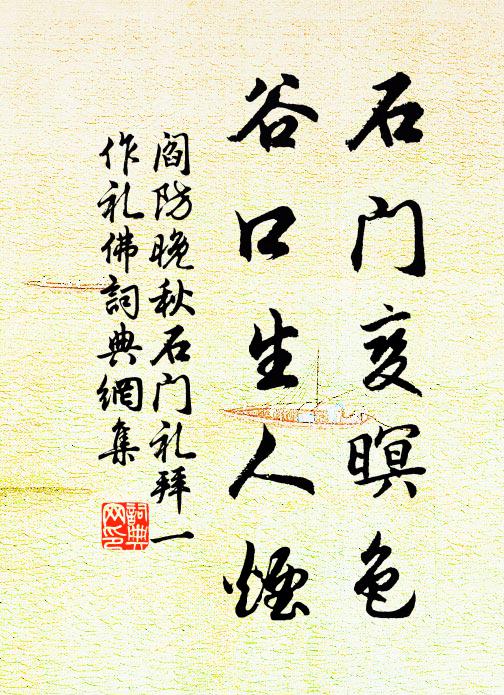 石门变暝色
谷口生人煙
阎防晚秋石门礼拜一
作礼佛詞典網集
詞典
网印